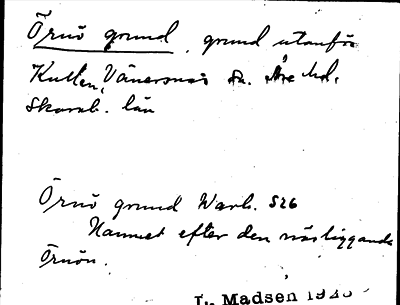 Örnö grund, grund utanför
Kullen, Vänersnäs sn. Åse hd.
Skarab. län
Örnö grund Warb. S26
Namnet efter den närliggande
Örnön.
L. Madsen 1925